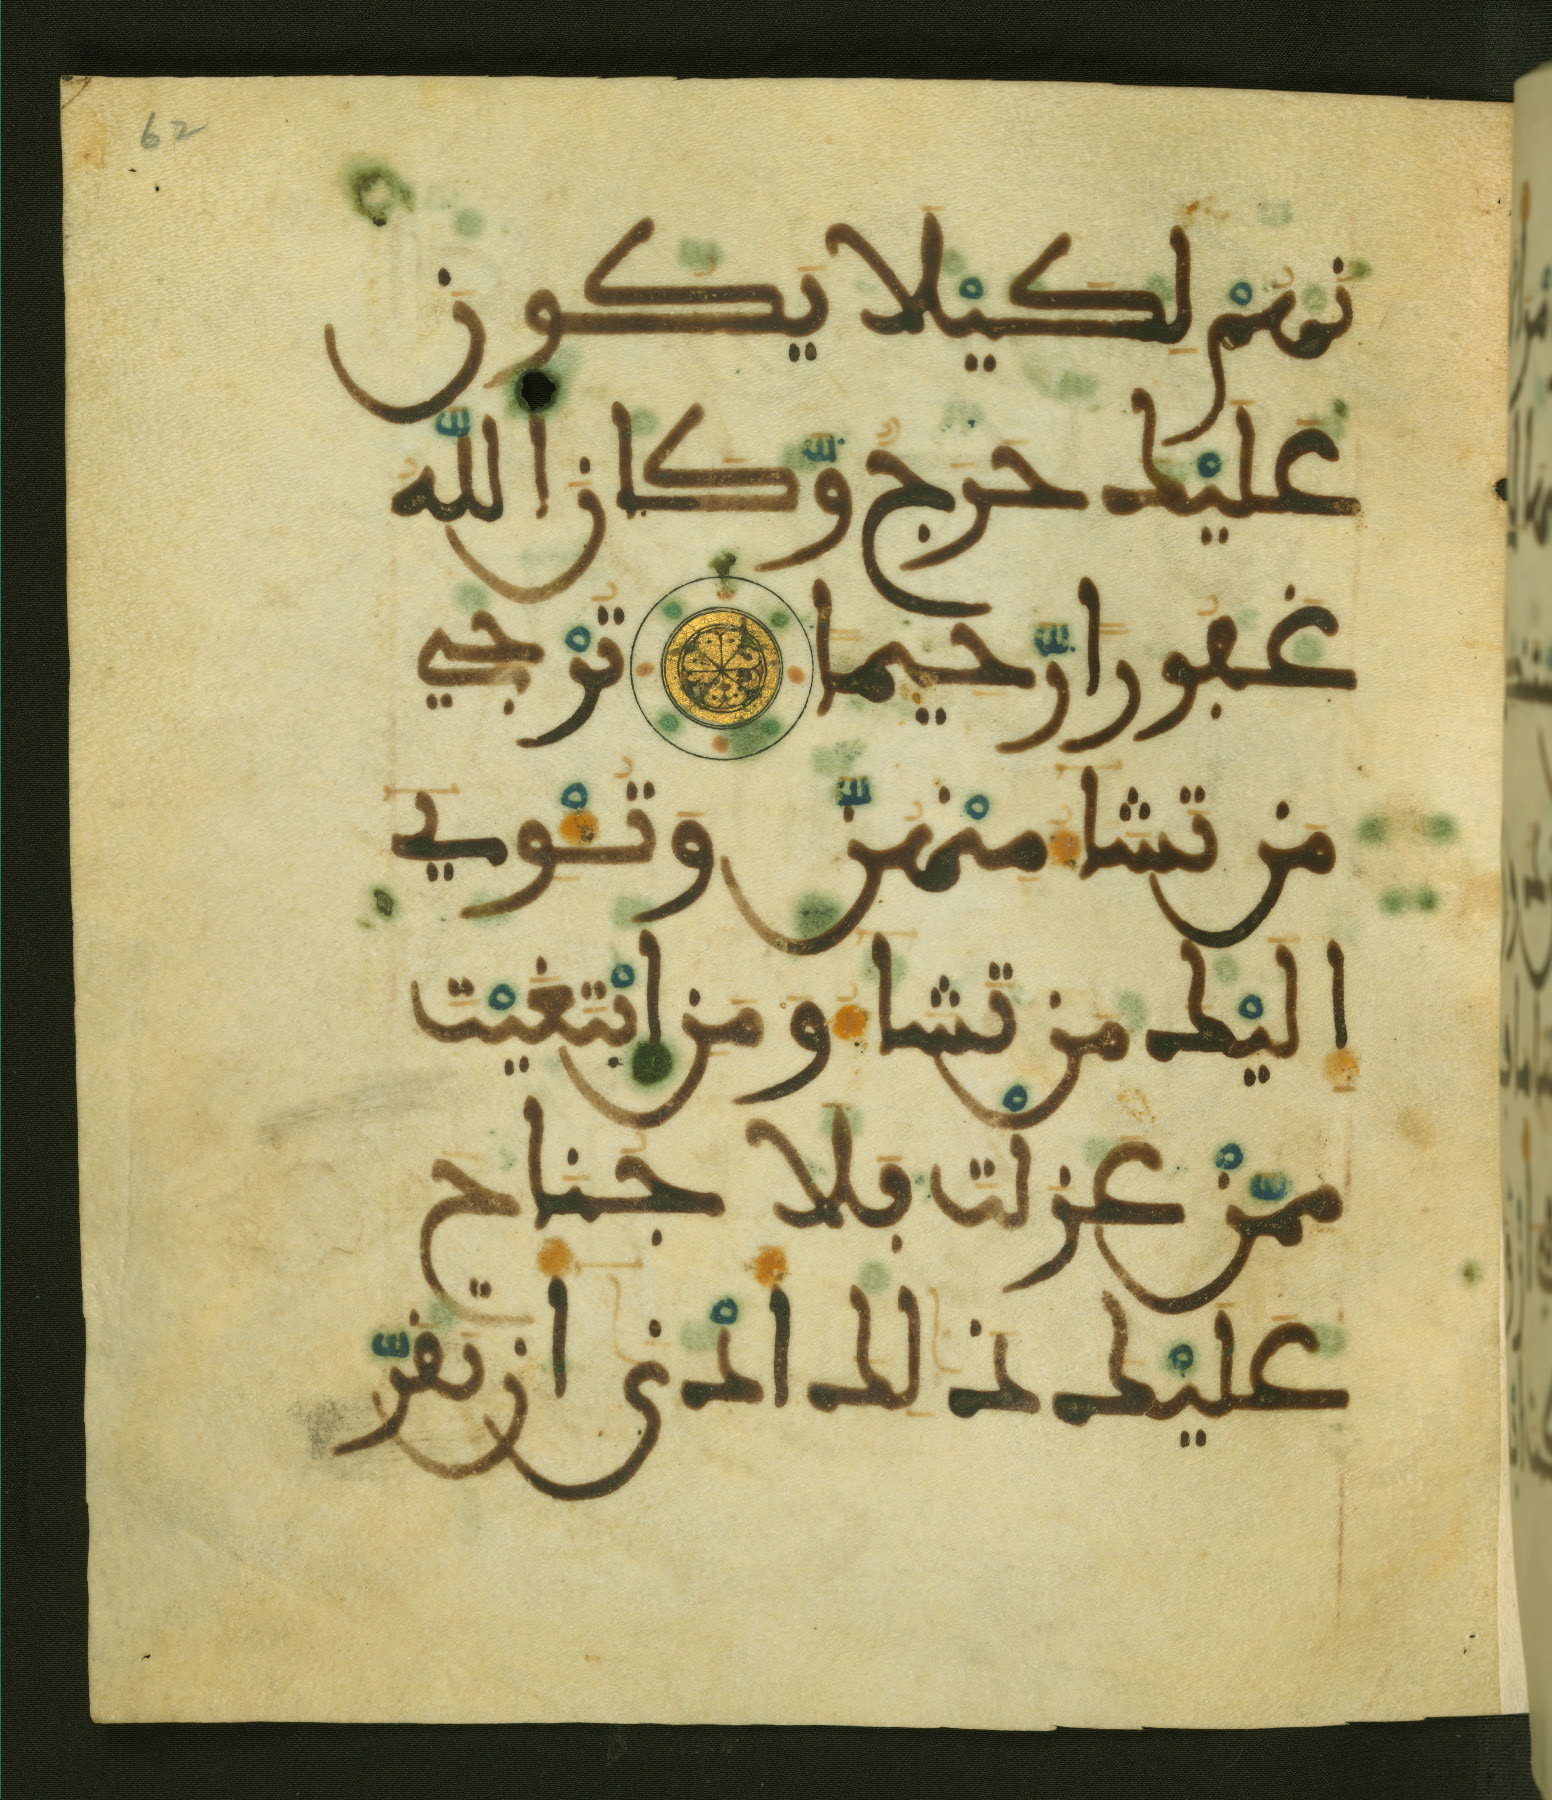 62
نُهُمْ لِكَيْلَا يَكُونَ
عَلَيْكَ حَرَجٌ وَّكَانَ اَللَّهُ
غَفُورًا رَّحِيمًا تُرْجِي
مَن تَشَآءُ مِنْهُنَّ وَتُـْٔوِيٓ
إِلَيْكَ مَن تَشَآءُ وَمَنِ اِبْتَغَيْتَ
مِمَّنْ عَزَلْتَ فَلَا جُنَاحَ
عَلَيْكَ ذَٰلِكَ أَدْنَىٰٓ أَن تَقَرَّ